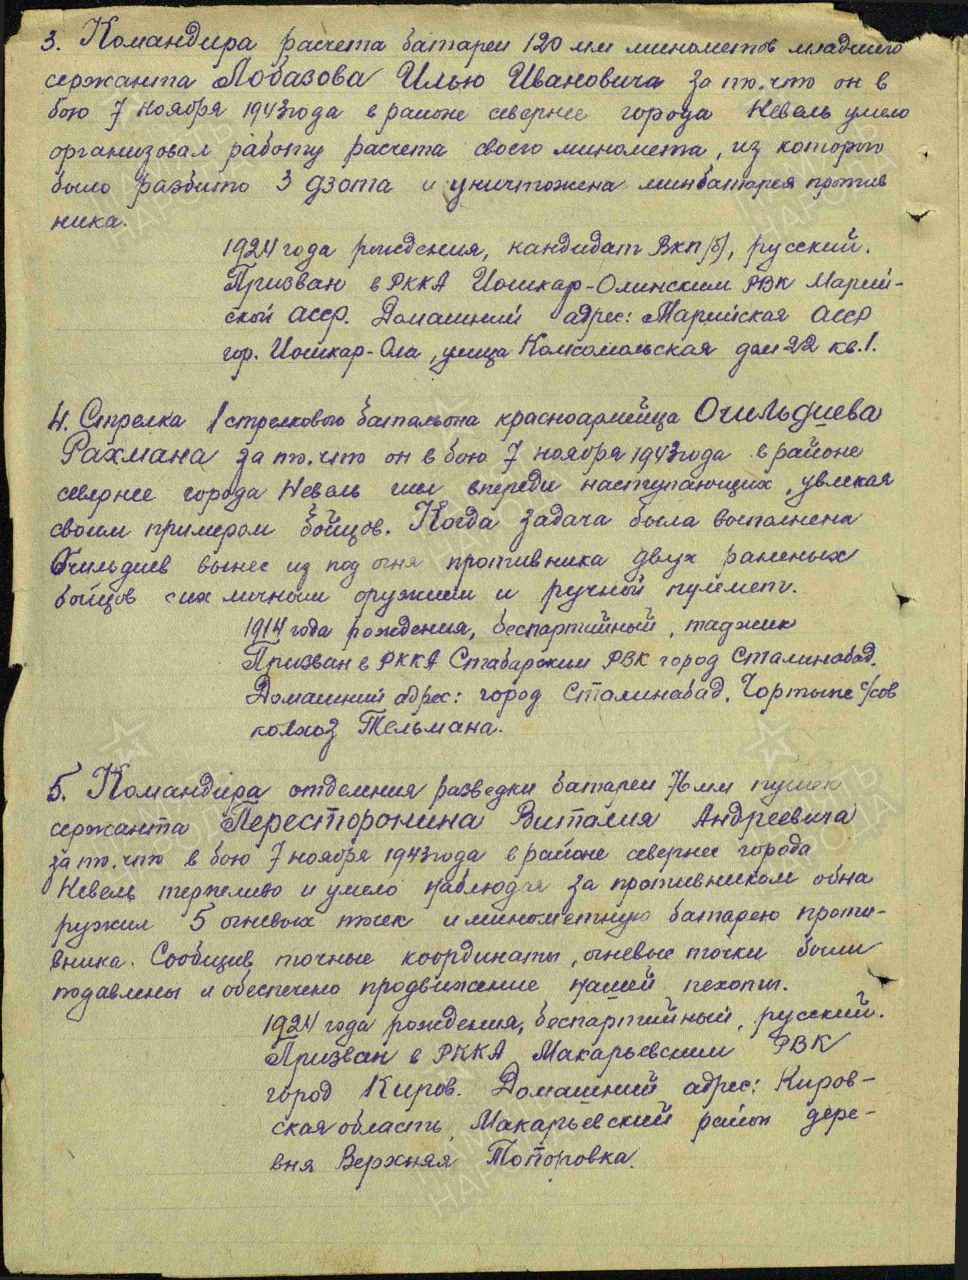 3. Командира расчета батареи 120 мм минометов младшего
сержанта Лобазова Илью Ивановича за то, что он в
бою 7 ноября 1943 года в районе севернее города Невель умело
организовал работу расчета своего миномета, из которого
было разбито 3 дзота и уничтожена минбатарея против
ника.
1924 года рождения, кандидат ВКП/б/, русский.
Призван в РККА Йошкар-Олинским РВК Марий-
ской АССР. Домашний адрес: Марийская АССР
гор. Йошкар-Ола, улица Комсомольская дом 22 кв.1.
4. Стрелка 1 стрелкового батальона красноармейца Очильдиева
Рахмана за то, что он в бою 7 ноября 1943 года в районе
севернее города Невель шел впереди наступающих, увлекая
своим примером бойцов. Когда задача была выполнена
Очильдиев вынес из под огня противника двух раненых
бойцов с их личным оружием и ручной пулемет.
1914 года рождения, беспартийный, таджик
Призван в РККА РВК город Сталинабад.
Домашний адрес: город Сталинабад. с/сов
колхоз Тельмана.
5. Командира отделения разведки батареи 76 мм пушек
сержанта Пересторонина Виталия Андреевича
за то, что в бою 7 ноября 1943 года в районе севернее города
Невель терпеливо и умело наблюдая за противником обна
ружил 5 огневых точек и минометную батарею проти-
вника. Сообщив точные координаты, огневые точки были
подавлены и обеспечено продвижение нашей пехоты.
1924 года рождения, беспартийный, русский.
Призван в РККА Макарьевским РВК
город Киров. Домашний адрес: Киров-
ская область, Макарьевский район дере-
вня Верхняя Топоровка.